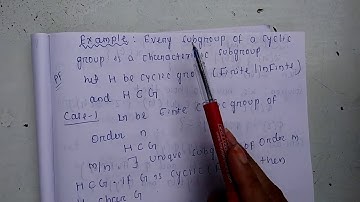 Example: Every subgroup of a cyclic
group is a characteristic subgroup
Pf let H be cyclic group (Finite/Infinite)
and H ⊂ G
Case-1 be Finite cyclic group of
Order n
H ⊂ G
m/n, ∃ unique of Order m
H ⊂ G. if G is cyclic then
H char G